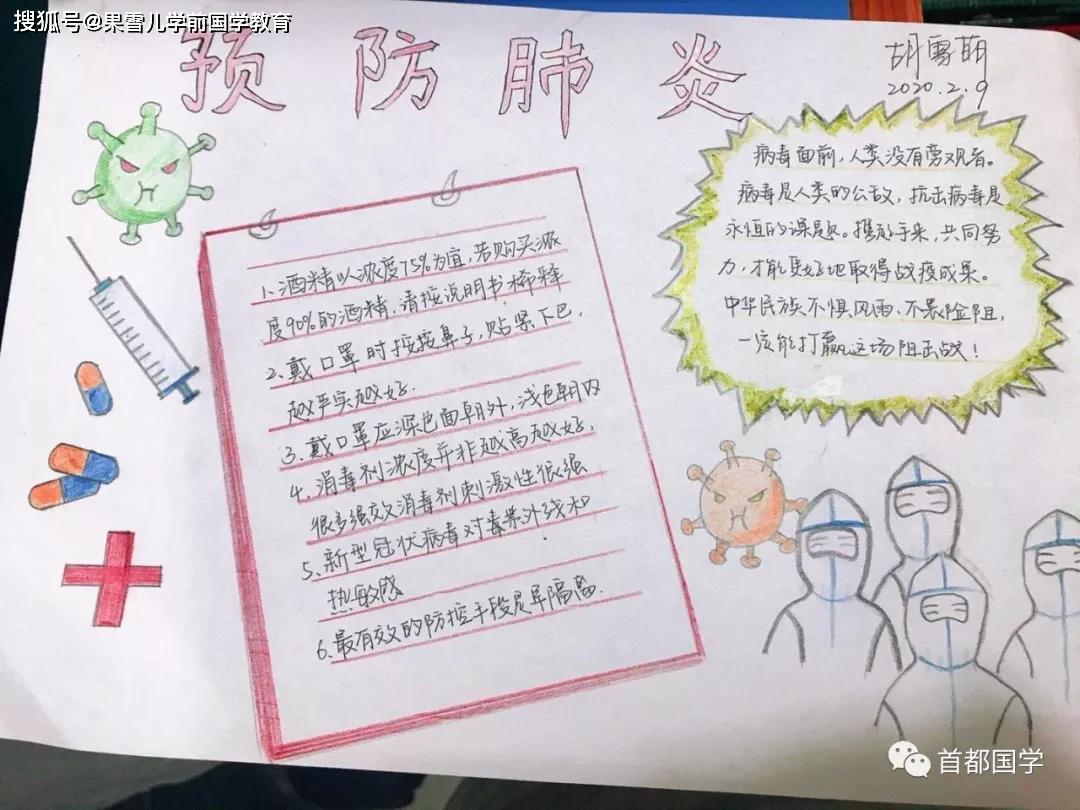 搜狐号@果雪儿学前国学教育
预防肺炎
胡雪萌
2020.2.9
病毒面前,人类没有旁观者。
病毒是人类的公敌,抗击病毒是
永恒的课题。携起手来,共同努
力,才能更好地取得战疫成果。
中华民族不惧风雨、不畏险阻,
一定能打赢这场阻击战!
1、酒精以浓度75%为宜,若购买浓
度90%的酒精,请按说明书稀释
2、戴口罩时按按鼻子,贴紧下巴,
越严实越好.
3、戴口罩应深色面朝外,浅色朝内
4、消毒剂浓度并非越高越好,
很多强效消毒剂刺激性很强
5、新型冠状病毒对毒紫外线和
热敏感
6、最有效的防控手段是早隔离.
首都国学